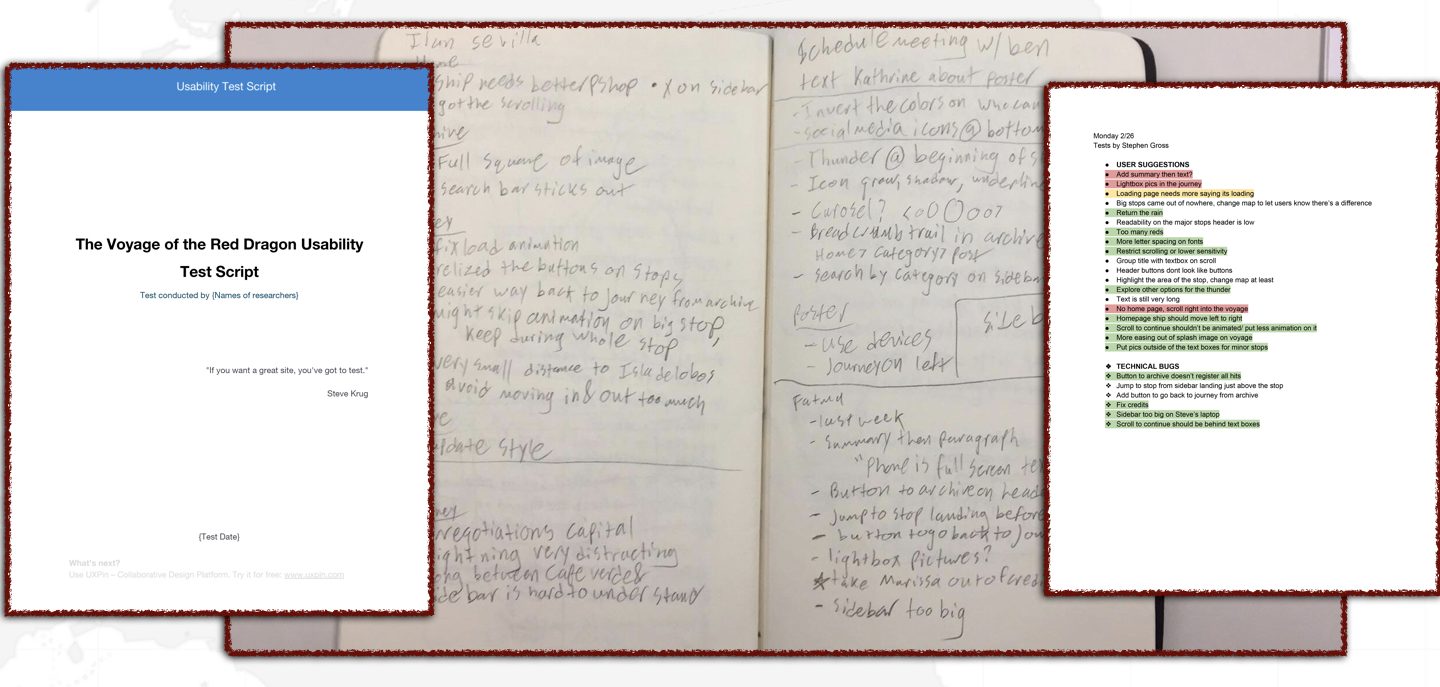 Usability Test Script
The Voyage of the Red Dragon Usability
Test Script
Test conducted by {Names of researchers}
"If you want a great site, you've got to test."
Steve Krug
{Test Date}
What's next?
Use UXPin – Collaborative Design Platform. Try it for free: www.uxpin.com
Ilan sevilla
Home
ship needs better pshop • X on sidebar
got the scrolling
Full Square of image
search bar sticks out
fix load animation
relized the buttons on stops
easier way back to Journey from archive
might skip animation on big stop,
keep during whole stop
very small distance to Isla de lobos
avoid moving in & out too much
update style
negotiations capital
lightning very distracting
long between Cafe verde &
side bar is hard to under stand
Schedule meeting w/ ben
text Kathrine about poster
- Invert the colors on who can
- social media icons @ bottom
- Thunder @ beginning of s
- Icon grow, shadow, underline
- Curosel?
- Breadcrumb trail in archive
Home > Category > post
- search by category on sideba
Poster
- use devices
- Journey on left
side b
Fatma
- last week
- Summary then paragraph
"Phone is full screen te
- Button to archive on head
- Jump to stop landing before
- button to go back to Jou
- lightbox pictures?
take Marissa out of cred
- sidebar too big
Monday 2/26
Tests by Stephen Gross
● USER SUGGESTIONS
● Add summary then text?
● Lightbox pics in the journey
● Loading page needs more saying its loading
● Big stops came out of nowhere, change map to let users know there's a difference
● Return the rain
● Readability on the major stops header is low
● Too many reds
● More letter spacing on fonts
● Restrict scrolling or lower sensitivity
● Group title with textbox on scroll
● Header buttons dont look like buttons
● Highlight the area of the stop, change map at least
● Explore other options for the thunder
● Text is still very long
● No home page, scroll right into the voyage
● Homepage ship should move left to right
● Scroll to continue shouldn't be animated/ put less animation on it
● More easing out of splash image on voyage
● Put pics outside of the text boxes for minor stops
❖ TECHNICAL BUGS
❖ Button to archive doesn't register all hits
❖ Jump to stop from sidebar landing just above the stop
❖ Add button to go back to journey from archive
❖ Fix credits
❖ Sidebar too big on Steve's laptop
❖ Scroll to continue should be behind text boxes